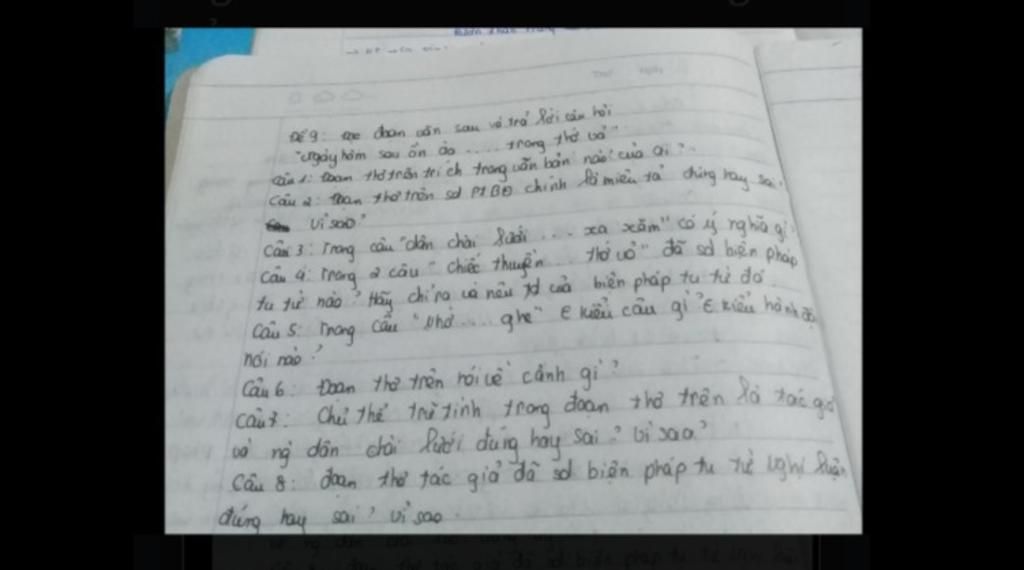 Đề 9: Đọc đoạn văn sau và trả lời câu hỏi
"Ngày hôm sau ồn ào .... trong thớ vỏ"
Câu 1: Đoạn thơ trên trích trong văn bản nào? của ai?
Câu 2: Đoạn thơ trên sd PTBĐ chính là miêu tả đúng hay sai.
vì sao?
Câu 3: Trong câu "dân chài lưới ... xa xăm" có ý nghĩa gì
Câu 4: Trong 2 câu "chiếc thuyền... thớ vỏ" đã sd biện pháp
tu từ nào? Hãy chỉ ra và nêu td của biện pháp tu từ đó.
Câu 5: Trong câu "Nhờ .... ghe" ∈ kiểu câu gì? ∈ kiểu hành độ
nói nào?
Câu 6: Đoạn thơ trên nói về cảnh gì?
Câu 7: Chủ thể trữ tình trong đoạn thơ trên là tác giả
và ng dân chài lưới đúng hay sai? Vì sao?
Câu 8: đoạn thơ tác giả đã sd biện pháp tu từ nghị luận
đúng hay sai? vì sao.